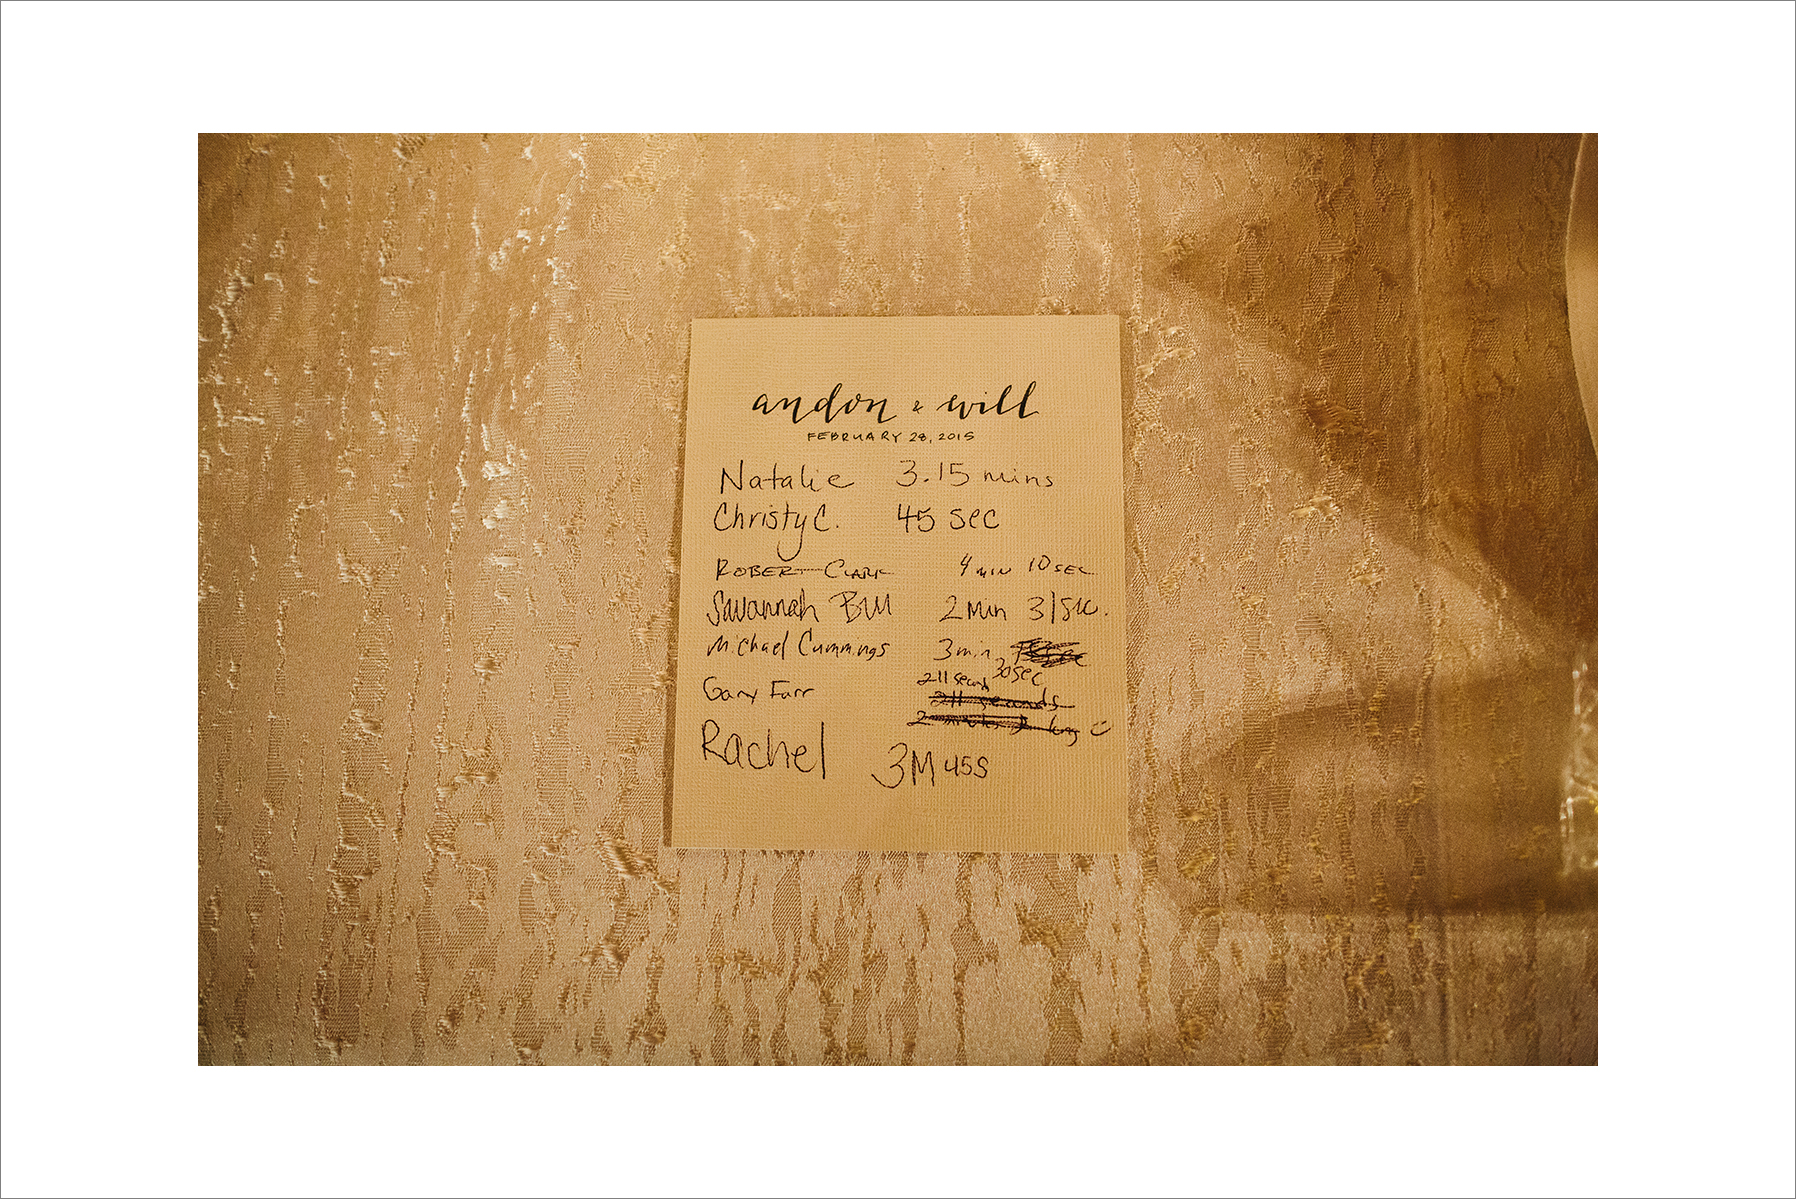 andon & will
FEBRUARY 28, 2015
Natalie 3.15 mins
Christy C. 45 sec
ROBERT CLARK 4 MIN 10 SEC
Savannah 2 Min 31 Sec.
Michael Cummings 3 min
30 sec
Gary Farr 211 seconds
211 seconds
2 minutes
Rachel 3M 45S